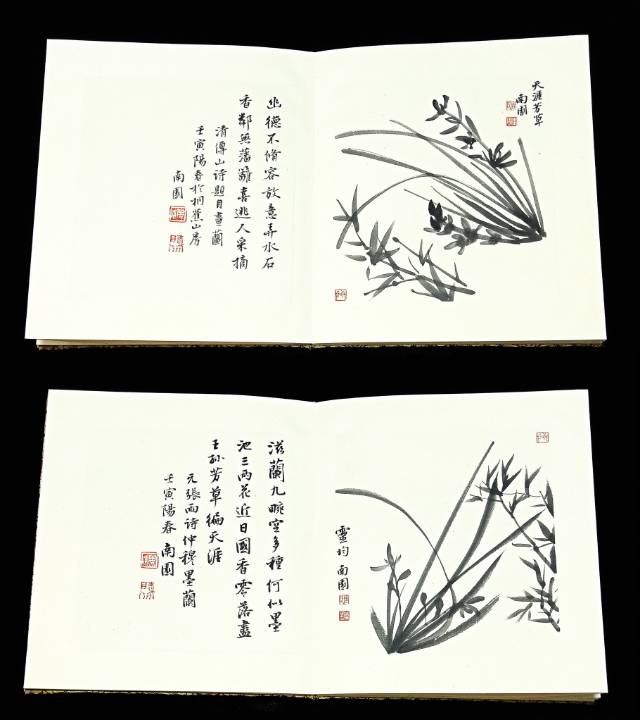 天涯芳草
南園
幽德不脩容放意弄水石
香鄰無藩籬喜逃人采摘
清傅山诗題自畫蘭
壬寅陽春於桐蕉山房
南園
靈均 南園
滋蘭九畹空多種何似墨
池三兩花近日國香零落盡
王孙芳草徧天涯
元張雨诗仲穆墨蘭
壬寅陽春 南園